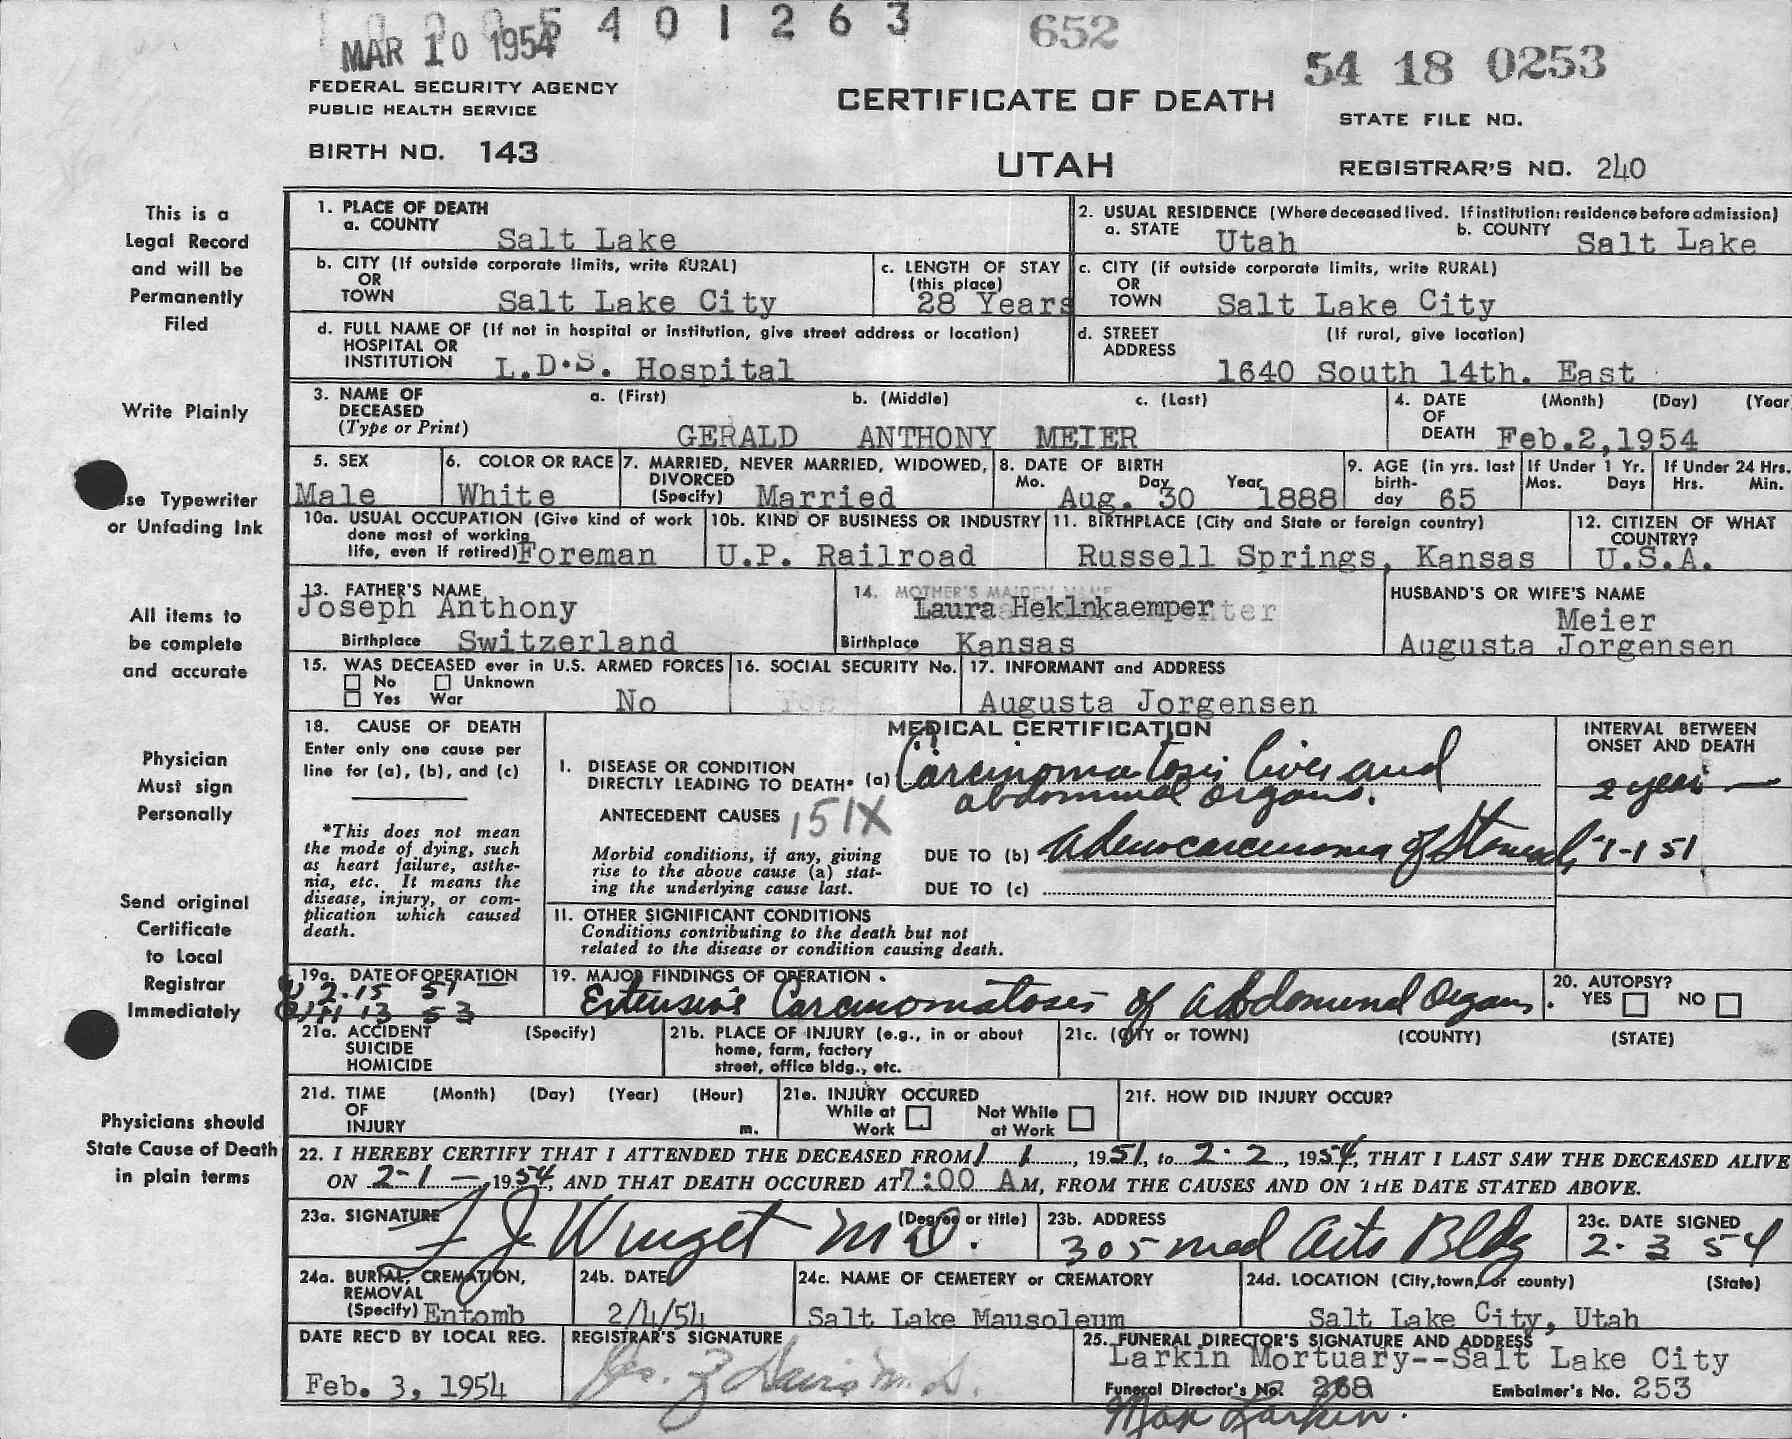 5401263
652
MAR 10 1954
54 18 0253
FEDERAL SECURITY AGENCY
PUBLIC HEALTH SERVICE
CERTIFICATE OF DEATH
STATE FILE NO.
BIRTH NO. 143
UTAH
REGISTRAR'S NO. 240
This is a
Legal Record
and will be
Permanently
Filed
Write Plainly
se Typewriter
or Unfading Ink
All items to
be complete
and accurate
Physician
Must sign
Personally
Send original
Certificate
to Local
Registrar
Immediately
Physicians should
State Cause of Death
in plain terms
1. PLACE OF DEATH
a. COUNTY Salt Lake
2. USUAL RESIDENCE (Where deceased lived. If institution: residence before admission)
a. STATE Utah b. COUNTY Salt Lake
b. CITY (If outside corporate limits, write RURAL)
OR
TOWN Salt Lake City
c. LENGTH OF STAY
(this place)
28 Years
c. CITY (if outside corporate limits, write RURAL)
OR
TOWN Salt Lake City
d. FULL NAME OF (If not in hospital or institution, give street address or location)
HOSPITAL OR
INSTITUTION L.D.S. Hospital
d. STREET (If rural, give location)
ADDRESS
1640 South 14th. East
3. NAME OF DECEASED
(Type or Print)
a. (First) b. (Middle) c. (Last)
GERALD ANTHONY MEIER
4. DATE OF DEATH (Month) (Day) (Year
Feb.2,1954
5. SEX
Male
6. COLOR OR RACE
White
7. MARRIED, NEVER MARRIED, WIDOWED,
DIVORCED
(Specify) Married
8. DATE OF BIRTH
Mo. Day Year
Aug. 30 1888
9. AGE (in yrs. last
birth-
day 65
If Under 1 Yr.
Mos. Days
If Under 24 Hrs.
Hrs. Min.
10a. USUAL OCCUPATION (Give kind of work
done most of working
life, even if retired) Foreman
10b. KIND OF BUSINESS OR INDUSTRY
U.P. Railroad
11. BIRTHPLACE (City and State or foreign country)
Russell Springs, Kansas
12. CITIZEN OF WHAT
COUNTRY?
U.S.A.
13. FATHER'S NAME
Joseph Anthony
Birthplace Switzerland
14. MOTHER'S MAIDEN NAME
Laura Heklnkaemper
Birthplace Kansas
HUSBAND'S OR WIFE'S NAME
Meier
Augusta Jorgensen
15. WAS DECEASED ever in U.S. ARMED FORCES
No Unknown
Yes War
No
16. SOCIAL SECURITY No.
17. INFORMANT and ADDRESS
Augusta Jorgensen
18. CAUSE OF DEATH
Enter only one cause per
line for (a), (b), and (c)
*This does not mean
the mode of dying, such
as heart failure, asthe-
nia, etc. It means the
disease, injury, or com-
plication which caused
death.
MEDICAL CERTIFICATION
INTERVAL BETWEEN
ONSET AND DEATH
I. DISEASE OR CONDITION
DIRECTLY LEADING TO DEATH* (a) Carcinomatosis liver and
abdominal organs.
2 years
ANTECEDENT CAUSES 151X
Morbid conditions, if any, giving
rise to the above cause (a) stat-
ing the underlying cause last.
DUE TO (b) Adenocarcinoma of Stomach 1-1 51
DUE TO (c)
II. OTHER SIGNIFICANT CONDITIONS
Conditions contributing to the death but not
related to the disease or condition causing death.
19a. DATE OF OPERATION
2.15 51
11 13 53
19. MAJOR FINDINGS OF OPERATION
Extensive Carcinomatoses of Abdominal Organs.
20. AUTOPSY?
YES NO
21a. ACCIDENT (Specify)
SUICIDE
HOMICIDE
21b. PLACE OF INJURY (e.g., in or about
home, farm, factory
street, office bldg., etc.
21c. (CITY or TOWN) (COUNTY) (STATE)
21d. TIME (Month) (Day) (Year) (Hour)
OF
INJURY m.
21e. INJURY OCCURED
While at Work Not While at Work
21f. HOW DID INJURY OCCUR?
22. I HEREBY CERTIFY THAT I ATTENDED THE DECEASED FROM 1 1, 1951, to 2.2, 1954, THAT I LAST SAW THE DECEASED ALIVE
ON 2-1 -, 1954, AND THAT DEATH OCCURED AT 7:00 AM, FROM THE CAUSES AND ON THE DATE STATED ABOVE.
23a. SIGNATURE (Degree or title)
F J Winget M D.
23b. ADDRESS
305 Med Arts Bldg
23c. DATE SIGNED
2. 3 54
24a. BURIAL, CREMATION,
REMOVAL
(Specify) Entomb
24b. DATE
2/4/54
24c. NAME OF CEMETERY or CREMATORY
Salt Lake Mausoleum
24d. LOCATION (City, town, or county) (State)
Salt Lake City, Utah
DATE REC'D BY LOCAL REG.
Feb. 3, 1954
REGISTRAR'S SIGNATURE
Davis M. D.
25. FUNERAL DIRECTOR'S SIGNATURE AND ADDRESS
Larkin Mortuary--Salt Lake City
Funeral Director's No. Embalmer's No. 253
Max Larkin.